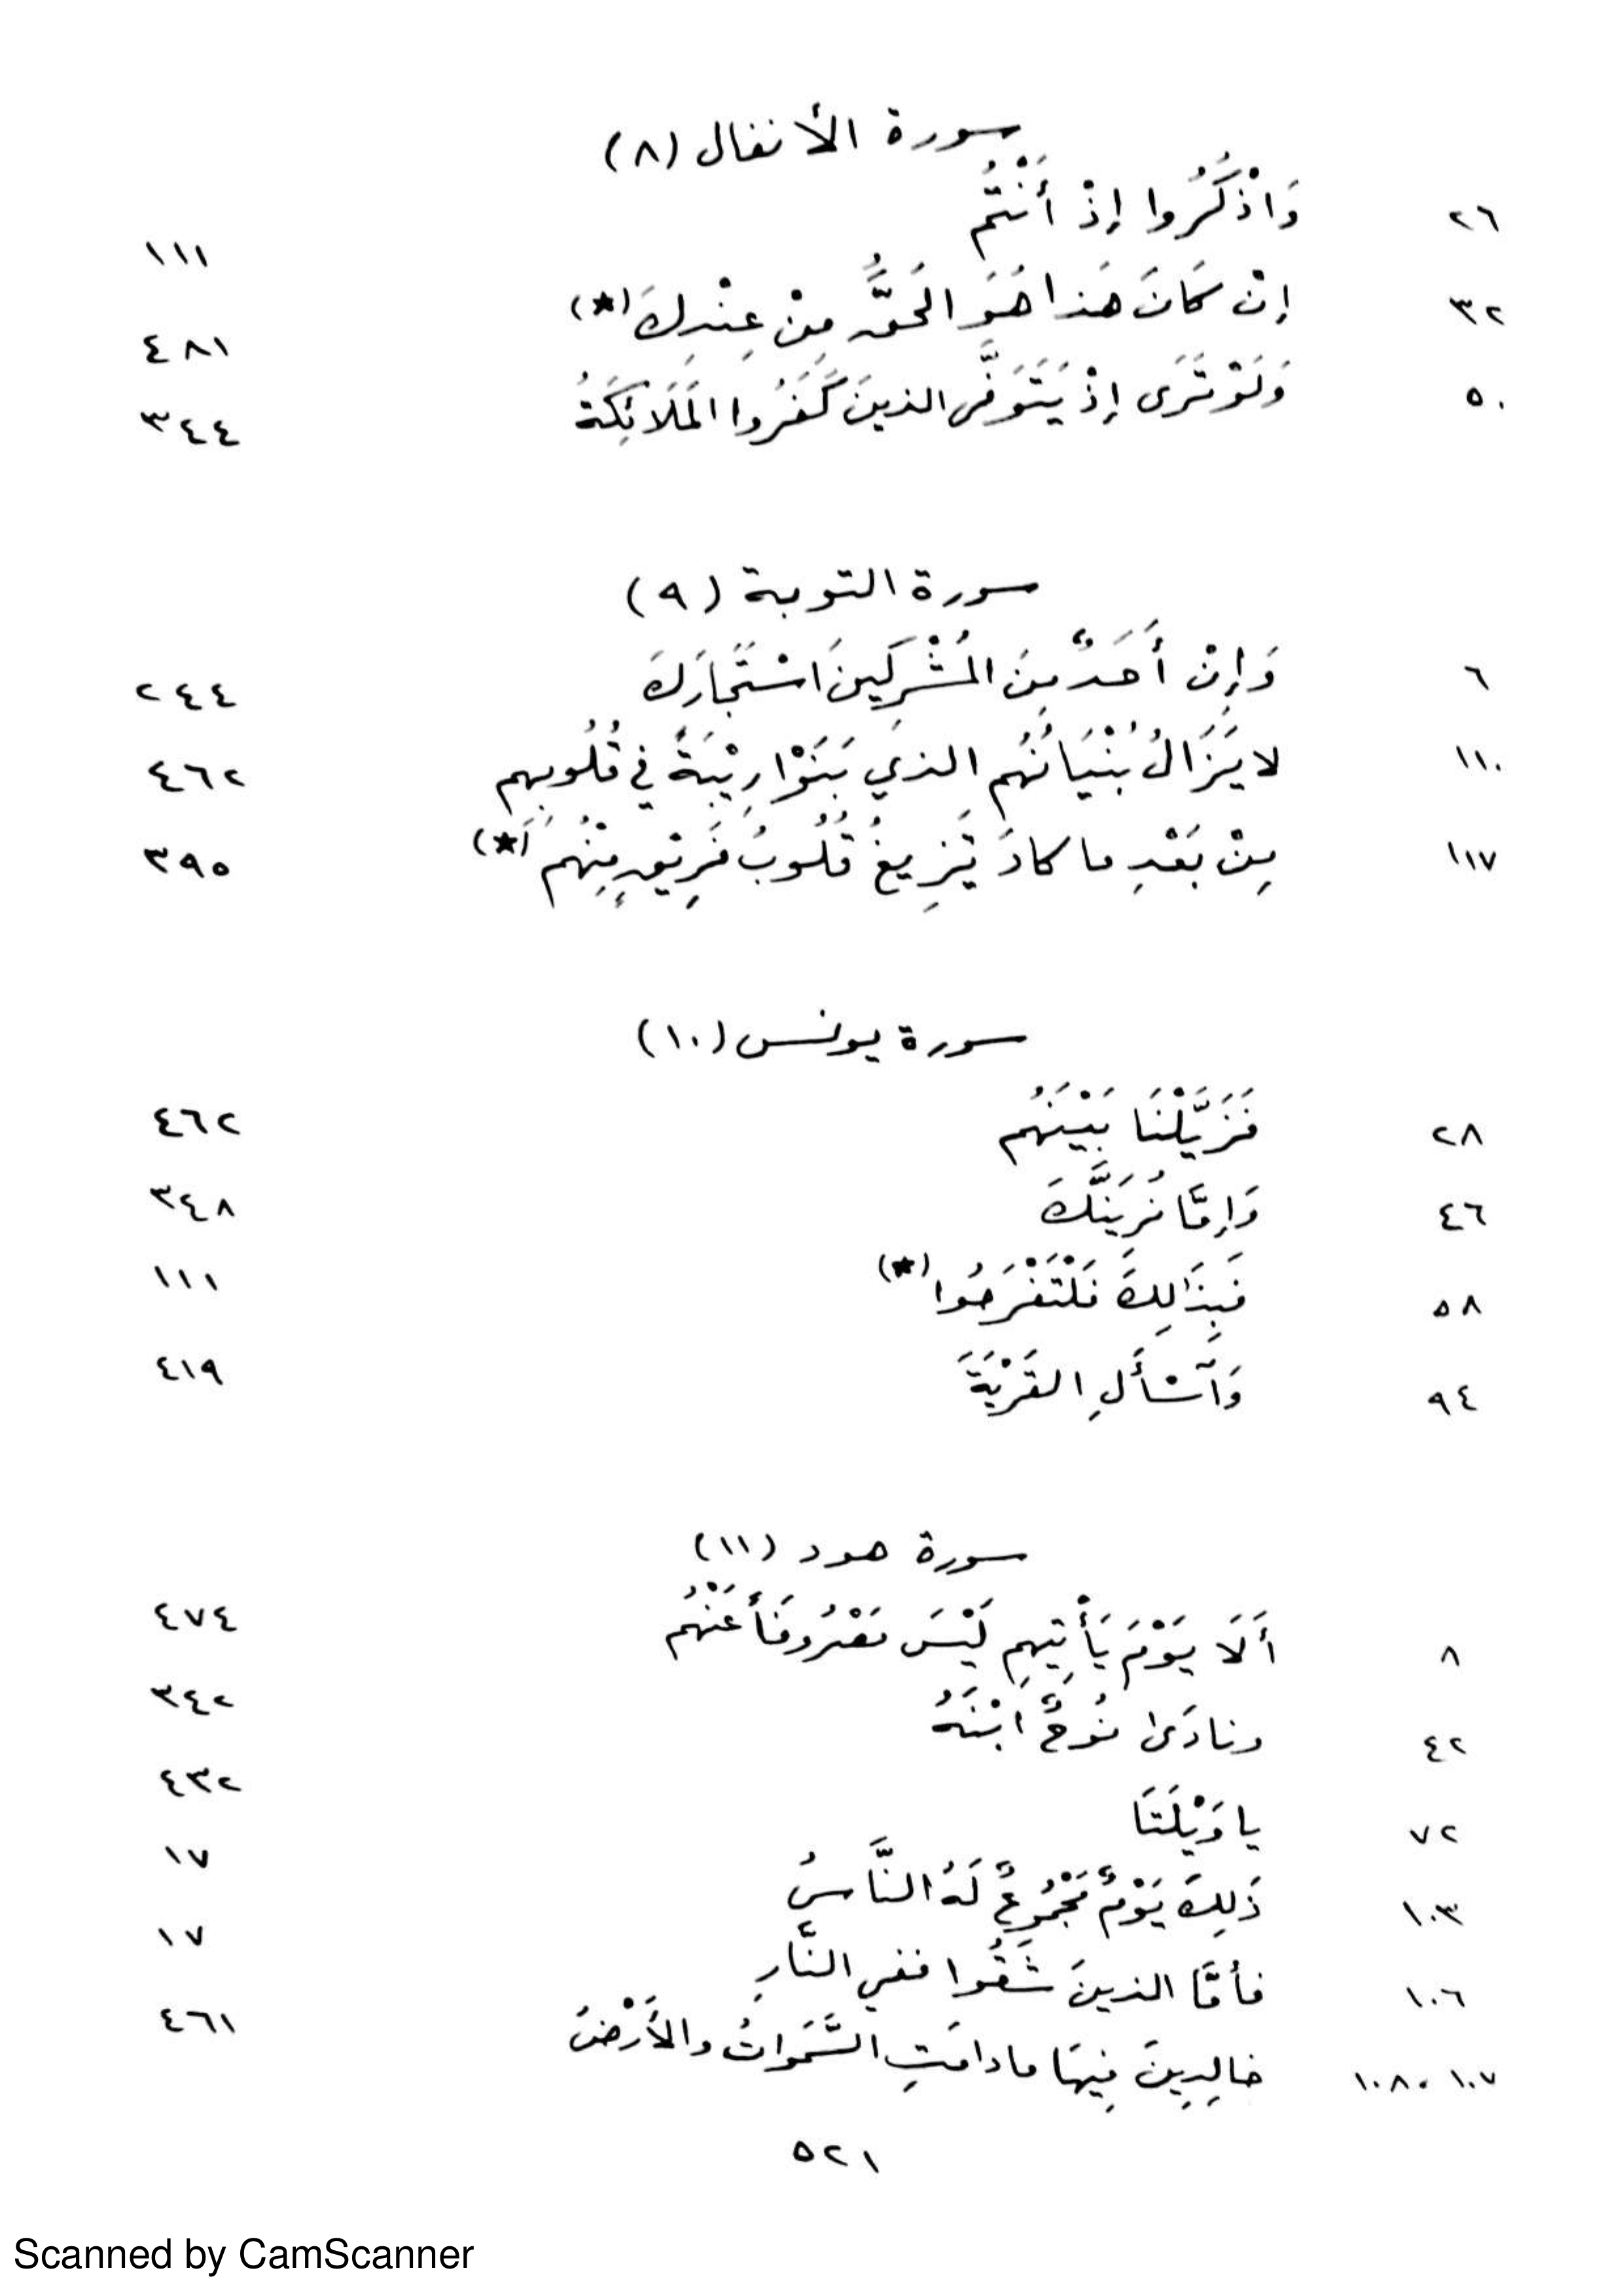 سورة الأنفال (٨)
٢٦ وَاذْكُرُوا إِذْ أَنْتُمْ ١١١
٣٢ إنْ كَانَ هَذا هُوَ الحَقَّ مِنْ عِنْدِكَ (★) ٤٨١
٥٠ وَلَوْ تَرَى إذْ يَتَوَفَّى الذينَ كَفَرُوا المَلَائِكَةُ ٣٤٤
سورة التوبة (٩)
٦ وَإِنْ أَحَدٌ مِنَ المُشْرِكِينَ اسْتَجَارَكَ ٢٤٤
١١٠ لا يَزَالُ بُنْيَانُهُم الذي بَنَوْا رِيْبَةً في قُلُوبِهِم ٤٦٢
١١٧ مِنْ بَعْدِ ما كادَ تَزِيغُ قُلُوبُ فَرِيْقٍ مِنْهُم (★) ٣٩٥
سورة يونس (١٠)
٢٨ فَزَيَّلْنَا بَيْنَهُم ٤٦٢
٤٦ وَإِمَّا نُرِيَنَّكَ ٣٤٨
٥٨ فَبِذَالِكَ فَلْتَفْرَحُوا (★) ١١١
٩٤ وَاسْأَلِ القَرْيَةَ ٤١٩
سورة هود (١١)
٨ أَلَا يَوْمَ يَأْتِيهِمِ لَيْسَ مَعْرُوفَاً عَنْهُم ٤٧٤
٤٢ ونادَى نُوحٌ ابْنَهُ ٣٤٢
٧٢ يا وَيْلَتَا ٤٣٢
١٠٣ ذَلِكَ يَوْمٌ مَجْمُوعٌ لَهُ النَّاسُ ١٧
١٠٦ فأمَّا الذينَ شَقُوا ففي النَّارِ ١٧
١٠٧، ١٠٨ خالِدِينَ فِيهَا مادامَتِ السَّمَواتُ والأَرْضُ ٤٦١
٥٢١
Scanned by CamScanner